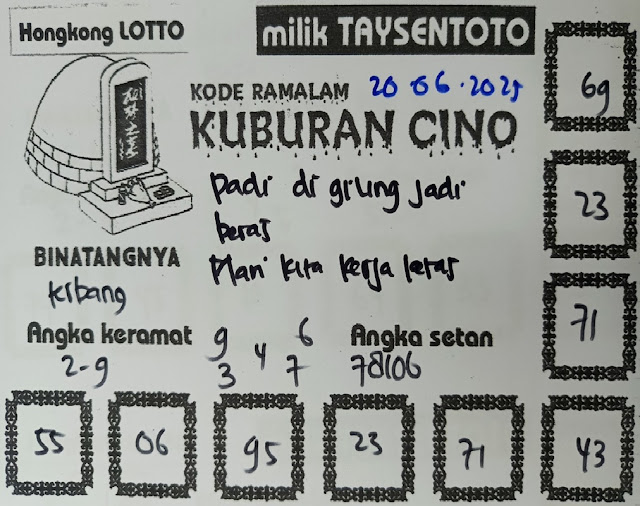 Hongkong LOTTO
milik TAYSENTOTO
KODE RAMALAM 20.06.2025
KUBURAN CINO
padi di giling jadi
beras
Mari kita kerja keras
BINATANGNYA
Angka keramat
2-9
9 6
4
3 7
Angka setan
78106
69
23
71
55 06 95 23 71 43